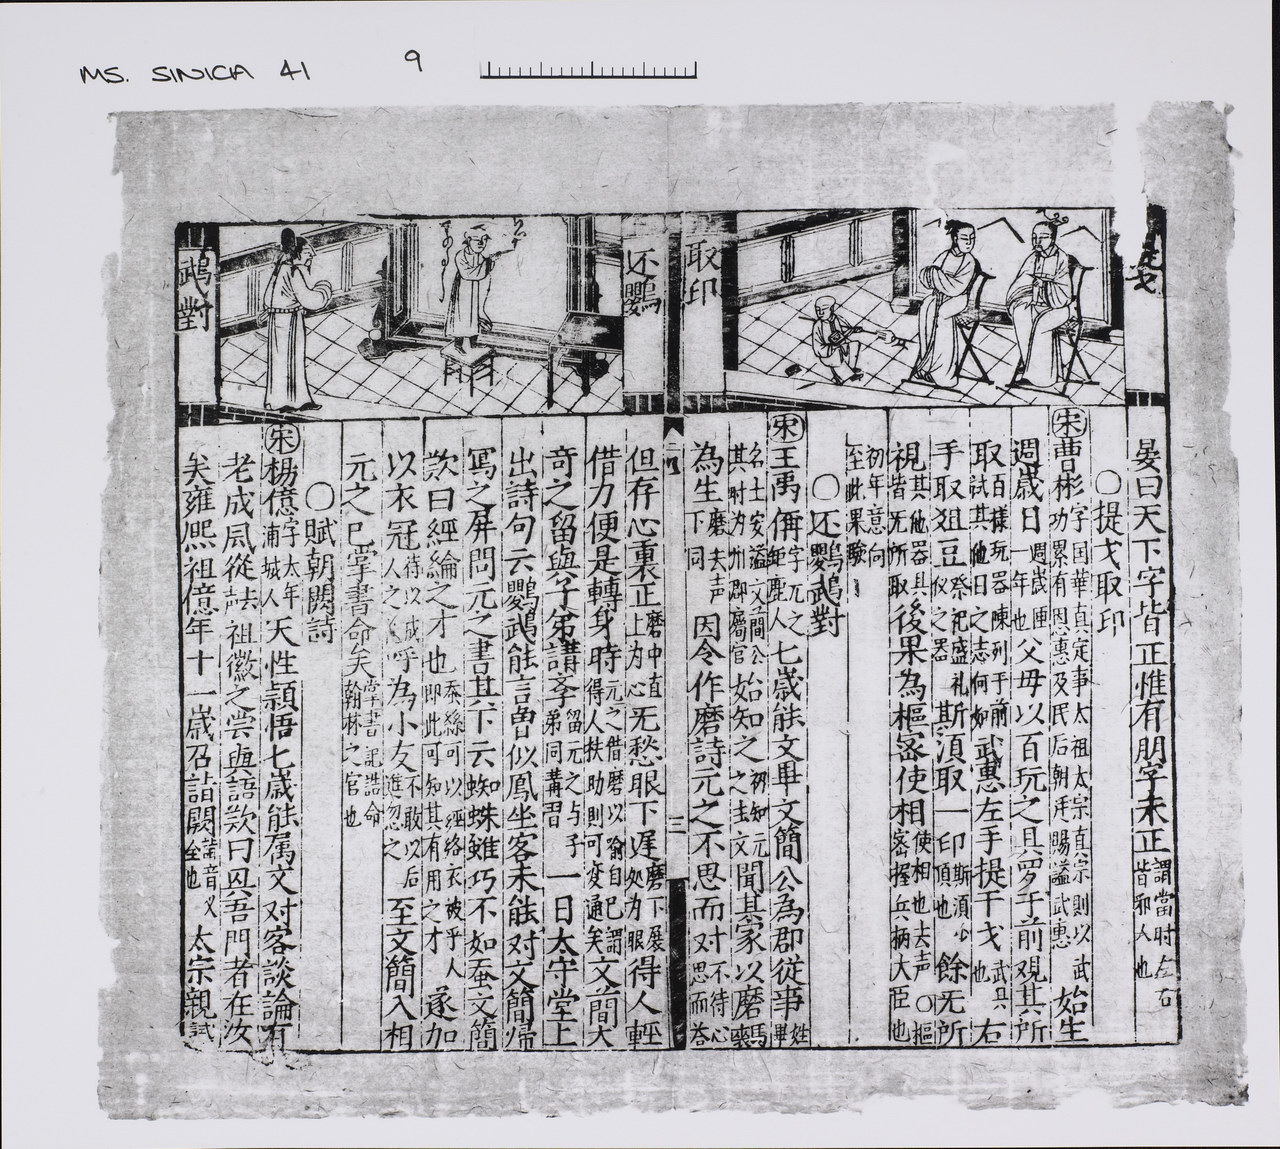 MS. SINICA 41
9
提戈
取印
还鸚
鵡對
晏曰天下字皆正惟有朋字未正謂當时左右皆邪人也
〇提戈取印
宋曹彬字国華真定事太祖太宗直宗則以武功累有恩惠及民后朝廷賜謚武惠始生
週歲日週歲匝一年也父母以百玩之具罗于前观其所
取百樣玩器陳列于前試其他日之志何如武惠左手提干戈武具也右
手取俎豆祭祀盛礼仪之器斯湏取一印斯湏少頃也餘无所
視其他器具皆无所取後果為樞宻使相使相也去声〇樞宻握兵柄大臣也
初年意向至此果驗
〇还鸚鵡對
宋王禹偁字元之鉅鹿人七歲能文畢文簡公為郡從事姓畢
名士安謚文簡公其时为州郡属官始知之初知元之主文聞其家以磨麪
為生磨去声下同因令作磨詩元之不思而对不待心思而答
但存心裏正磨中直上为心无愁眼下遅磨下展处为眼得人輕
借力便是轉身時元之借磨以喻自己謂得人扶助則可变通矣文簡大
奇之留與子弟講斈留元之与子弟同講習一日太守堂上
出詩句云鸚鵡能言曽似鳳坐客未能对文簡帰
寫之屏問元之書其下云蜘蛛雖巧不如蚕文簡
歎曰經綸之才也蚕絲可以經絡衣被乎人即此可知其有用之才遂加
以衣冠待以成人之礼呼為小友不敢以后進忽之至文簡入相
元之已掌書命矣掌書記誥命翰林之官也
〇賦朝闕詩
宋楊億字大年浦城人天性頴悟七歲能属文对客談論有
老成风從叔祖徽之尝與語歎曰興吾門者在汝
矣雍熙祖億年十一歲召詣闕詣音义仝也太宗親試
三